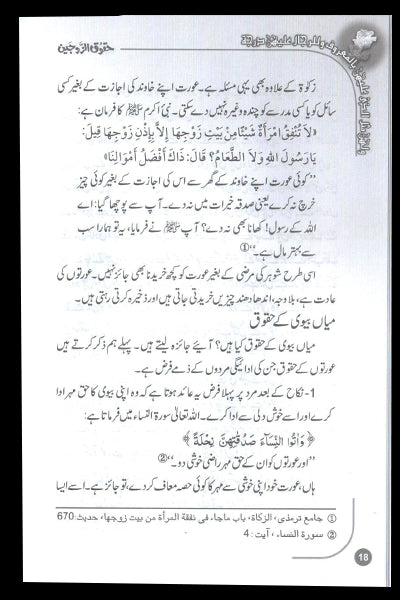 حقوق الزوجین
زکوٰۃ کے علاوہ بھی یہی مسئلہ ہے۔ عورت اپنے خاوند کی اجازت کے بغیر کسی
سائل کو یا کسی مدرسے کو چندہ وغیرہ نہیں دے سکتی۔ نبی اکرم ﷺ کا فرمان ہے:
«لاَ تُنْفِقُ امْرَأَةٌ شَيْئًا مِنْ بَيْتِ زَوْجِهَا إِلاَّ بِإِذْنِ زَوْجِهَا قِيلَ:
يَارَسُولَ اللهِ وَلاَ الطَّعَامُ؟ قَالَ: ذَاكَ أَفْضَلُ أَمْوَالِنَا»
’’کوئی عورت اپنے خاوند کے گھر سے اس کی اجازت کے بغیر کوئی چیز
خرچ نہ کرے یعنی صدقہ خیرات میں نہ دے۔ آپ سے پوچھا گیا: اے
اللہ کے رسول! کھانا بھی نہ دے؟ آپ ﷺ نے فرمایا، یہ تو ہمارا سب
سے بہتر مال ہے۔‘‘①
اسی طرح شوہر کی مرضی کے بغیر عورت کو کچھ خریدنا بھی جائز نہیں۔ عورتوں کی
عادت ہے، بلاوجہ، اندھا دھند چیزیں خریدتی جاتی ہیں اور ذخیرہ کرتی رہتی ہیں۔
میاں بیوی کے حقوق
میاں بیوی کے حقوق کیا ہیں؟ آیئے جائزہ لیتے ہیں۔ پہلے ہم ذکر کرتے ہیں
عورتوں کے حقوق جن کی ادائیگی مردوں کے ذمے فرض ہے۔
1- نکاح کے بعد مرد پر پہلا فرض یہ عائد ہوتا ہے کہ وہ اپنی بیوی کا حق مہر ادا
کرے اور اسے خوش دلی سے ادا کرے۔ اللہ تعالیٰ سورۃ النساء میں فرماتا ہے:
﴿ وَاٰتُوا النِّسَآءَ صَدُقٰتِهِنَّ نِحْلَةً ﴾
’’اور عورتوں کو ان کے حق مہر راضی خوشی دو۔‘‘②
ہاں، عورت خود اپنی خوشی سے مہر کا کوئی حصہ معاف کر دے، تو جائز ہے۔ اسے ایسا
① جامع ترمذی، الزکاة، باب ماجاء فی نفقة المرأة من بیت زوجها، حدیث: 670
② سورة النساء، آیت: 4
18